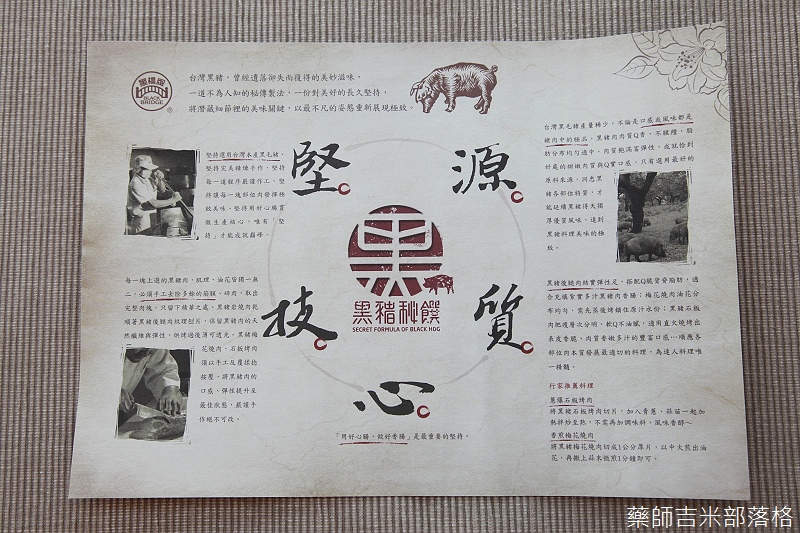 黑橋牌
BLACK
BRIDGE
®
台灣黑豬，曾經遺落卻失而復得的美妙滋味，
一道不為人知的秘傳製法，一份對美好的長久堅持，
將潛藏細節裡的美味關鍵，以最不凡的姿態重新展現極致。
堅
堅持選用台灣本產黑毛豬，
堅持完美精煉手作，堅持
每一道程序嚴謹作工、堅
持讓每一塊部位肉發揮極
致美味，堅持用好心腸實
徹生產初心，唯有「堅
持」才能成就巔峰。
源
台灣黑毛豬產量稀少，不論是口感或風味都是
豬肉中的極品。黑豬肉肉質Q香、不腥羶，脂
肪分布均勻適中，肉質飽滿富彈性，成就恰到
好處的甜嫩肉質與Q實口感。只有選用最好的
原料來源，洞悉黑
豬各部位特質，才
能延續黑豬得天獨
厚優質風味，達到
黑豬料理美味的極
致。
黑
黑豬秘饌
SECRET FORMULA OF BLACK HOG
技
每一塊上選的黑豬肉，肌理、油花皆獨一無
二，必須手工去除多餘的筋膜、碎肉，取出
完整肉塊，只留下精華之處。黑豬岩燒肉乾
順著黑豬後腿肉紋理刨片，保留黑豬肉的天
然纖維與彈性，烘烤過後薄可透光。黑豬梅
花燒肉、石板烤肉
須以手工及覆揉捻
按壓，將黑豬肉的
口感、彈性提升至
最佳狀態，嚴謹手
作絕不可改。
質
黑豬後腿肉結實彈性足，搭配Q脆背脊脂肪，適
合充填紮實多汁黑豬肉香腸；梅花燒肉油花分
布約均，需先蒸後烤鎖住原汁水份；黑豬石板
肉肥瘦層次分明，軟Q不油膩，適用直火燒烤出
表皮香脆、肉質香嫩多汁的豐富口感…順應各
部位肉本質發展最適切的料理，為達人料理唯
一精髓。
行家推薦料理
蔥爆石板烤肉
將黑豬石板烤肉切片，加入青蔥、蒜苗一起加
熱拌炒至熟，不需再加調味料，風味香醇~
香煎梅花燒肉
將黑豬梅花燒肉切成1公分厚片，以中火煎出油
花，再撒上蒜末微煎1分鐘即可。
心
「用好心腸，做好香腸」是最重要的堅持。
藥師吉米部落格